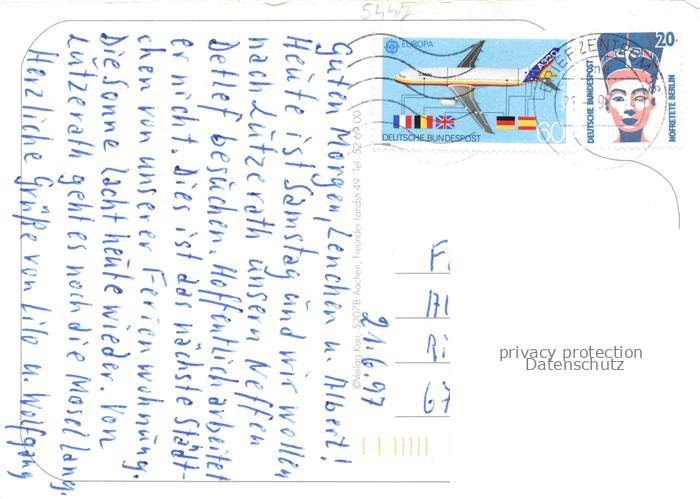 5445
Guten Morgen, Lenchen u. Albert!
Heute ist Samstag und wir wollen
nach Lützerath unsern Neffen
Detlef besuchen. Hoffentlich arbeitet
er nicht. Dies ist das nächste Städt-
chen von unserer Ferienwohnung.
Die Sonne lacht heute wieder. Von
Lützerath geht es noch die Mosel lang.
Herzliche Grüße von Lilo u. Wolfgang
21.6.97
©Verlag Korr, 52078 Aachen, Freunder Landstr. 49 Tel. 52 09 00
EUROPA
A320
DEUTSCHE BUNDESPOST
60
20
DEUTSCHE BUNDESPOST
NOFRETETE BERLIN
BRIEFZENTRUM
F
Al
Ri
67
privacy protection
Datenschutz